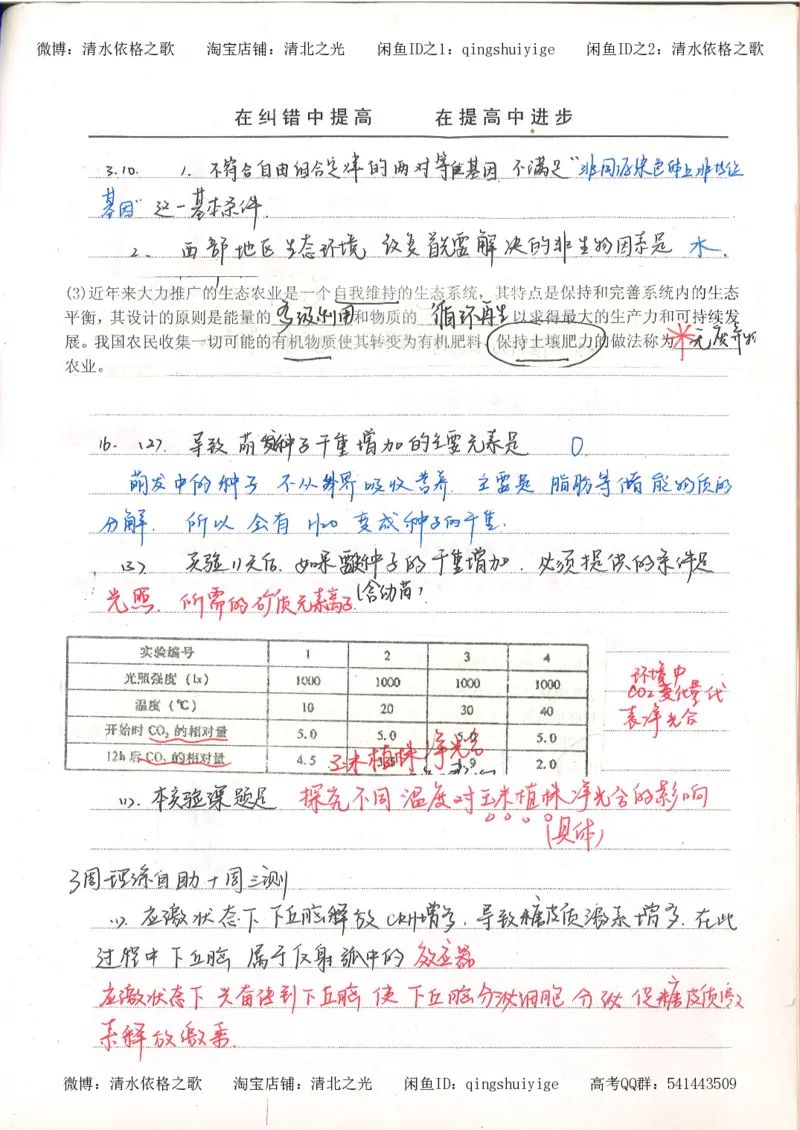 微博：清水依格之歌 淘宝店铺：清北之光 闲鱼ID之1：qingshuiyige 闲鱼ID之2：清水依格之歌
在纠错中提高 在提高中进步
3.10. 1. 不符合自由组合定律的两对等位基因，不满足“非同源染色体上非等位
基因”这一基本条件.
2. 西部地区生态环境，恢复首先需解决的非生物因素是 水.
(3)近年来大力推广的生态农业是一个自我维持的生态系统，其特点是保持和完善系统内的生态
平衡，其设计的原则是能量的 多级利用 和物质的 循环再生 以求得最大的生产力和可持续发
展。我国农民收集一切可能的有机物质使其转变为有机肥料，保持土壤肥力的做法称为 无废弃物
农业。
16. (2). 导致萌发种子干重增加的主要元素是 O.
萌发中的种子 不从外界吸收营养. 主要是 脂肪等储能物质的
分解. 所以会有 H2O 变成种子的干重.
(3) 实验11天后. 如果要使种子的干重增加. 必须提供的条件是
(含幼苗)
光照. 所需的矿质元素离子.
实验编号 1 2 3 4
光照强度（lx） 1000 1000 1000 1000
温度（℃） 10 20 30 40
开始时 CO2 的相对量 5.0 5.0 5.0 5.0
12h后CO2的相对量 4.5 2.0
玉米植株净光合
环境中
CO2变化量代
表净光合
(1). 本实验课题是 探究不同温度对玉米植株净光合的影响
(具体)
3周理综自助十周三测
(1) 应激状态下 下丘脑释放CRH增多. 导致糖皮质激素增多. 在此
过程中下丘脑 属于反射弧中的 效应器
应激状态下 兴奋传到下丘脑 使 下丘脑分泌细胞 分泌 促糖皮质激
素释放激素.
微博：清水依格之歌 淘宝店铺：清北之光 闲鱼ID：qingshuiyige 高考QQ群：541443509